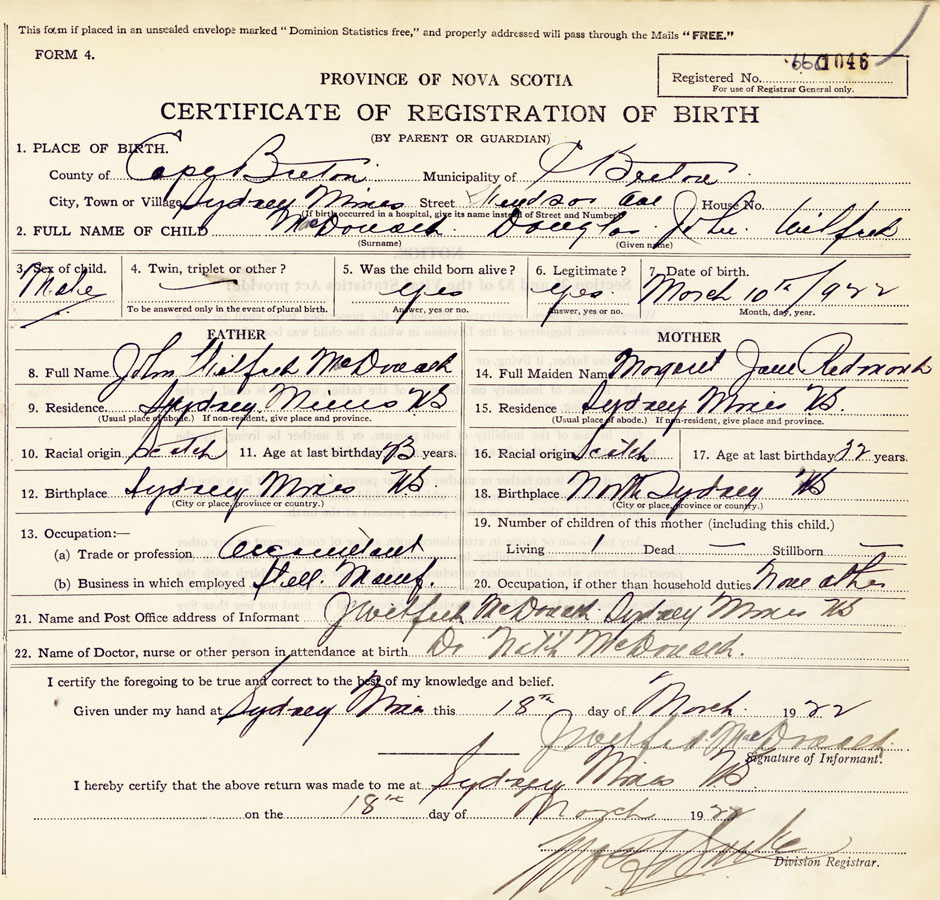 This form if placed in an unsealed envelope marked "Dominion Statistics free," and properly addressed will pass through the Mails "FREE."
FORM 4.
1046
Registered No.
For use of Registrar General only.
PROVINCE OF NOVA SCOTIA
CERTIFICATE OF REGISTRATION OF BIRTH
(BY PARENT OR GUARDIAN)
1. PLACE OF BIRTH.
County of Cape Breton Municipality of C Breton
City, Town or Village Sydney Mines Street Windsor Ave House No.
(If birth occurred in a hospital, give its name instead of Street and Number)
2. FULL NAME OF CHILD McDonald Douglas John Wilfred
(Surname) (Given name)
3. Sex of child. 4. Twin, triplet or other? 5. Was the child born alive? 6. Legitimate? 7. Date of birth.
Male — yes yes. March 10th 1922
To be answered only in the event of plural birth. Answer, yes or no. Answer, yes or no. Month, day, year.
FATHER MOTHER
8. Full Name John Wilfred McDonald 14. Full Maiden Name Margaret Jane Redmond
9. Residence Sydney Mines NS 15. Residence Sydney Mines NS.
(Usual place of abode.) If non-resident, give place and province. (Usual place of abode.) If non-resident, give place and province.
10. Racial origin Scotch 11. Age at last birthday 23 years. 16. Racial origin Scotch 17. Age at last birthday 22 years.
12. Birthplace Sydney Mines NS 18. Birthplace North Sydney NS
(City or place, province or country.) (City or place, province or country.)
13. Occupation:— 19. Number of children of this mother (including this child.)
(a) Trade or profession Accountant Living 1 Dead — Stillborn —
(b) Business in which employed Steel Manuf. 20. Occupation, if other than household duties None other
21. Name and Post Office address of Informant J Wilfred McDonald Sydney Mines NS
22. Name of Doctor, nurse or other person in attendance at birth Dr McDonald.
I certify the foregoing to be true and correct to the best of my knowledge and belief.
Given under my hand at Sydney Mines this 18th day of March 1922
J Wilfred McDonald
Signature of Informant.
I hereby certify that the above return was made to me at Sydney Mines NS.
on the 18th day of March 1922
Division Registrar.